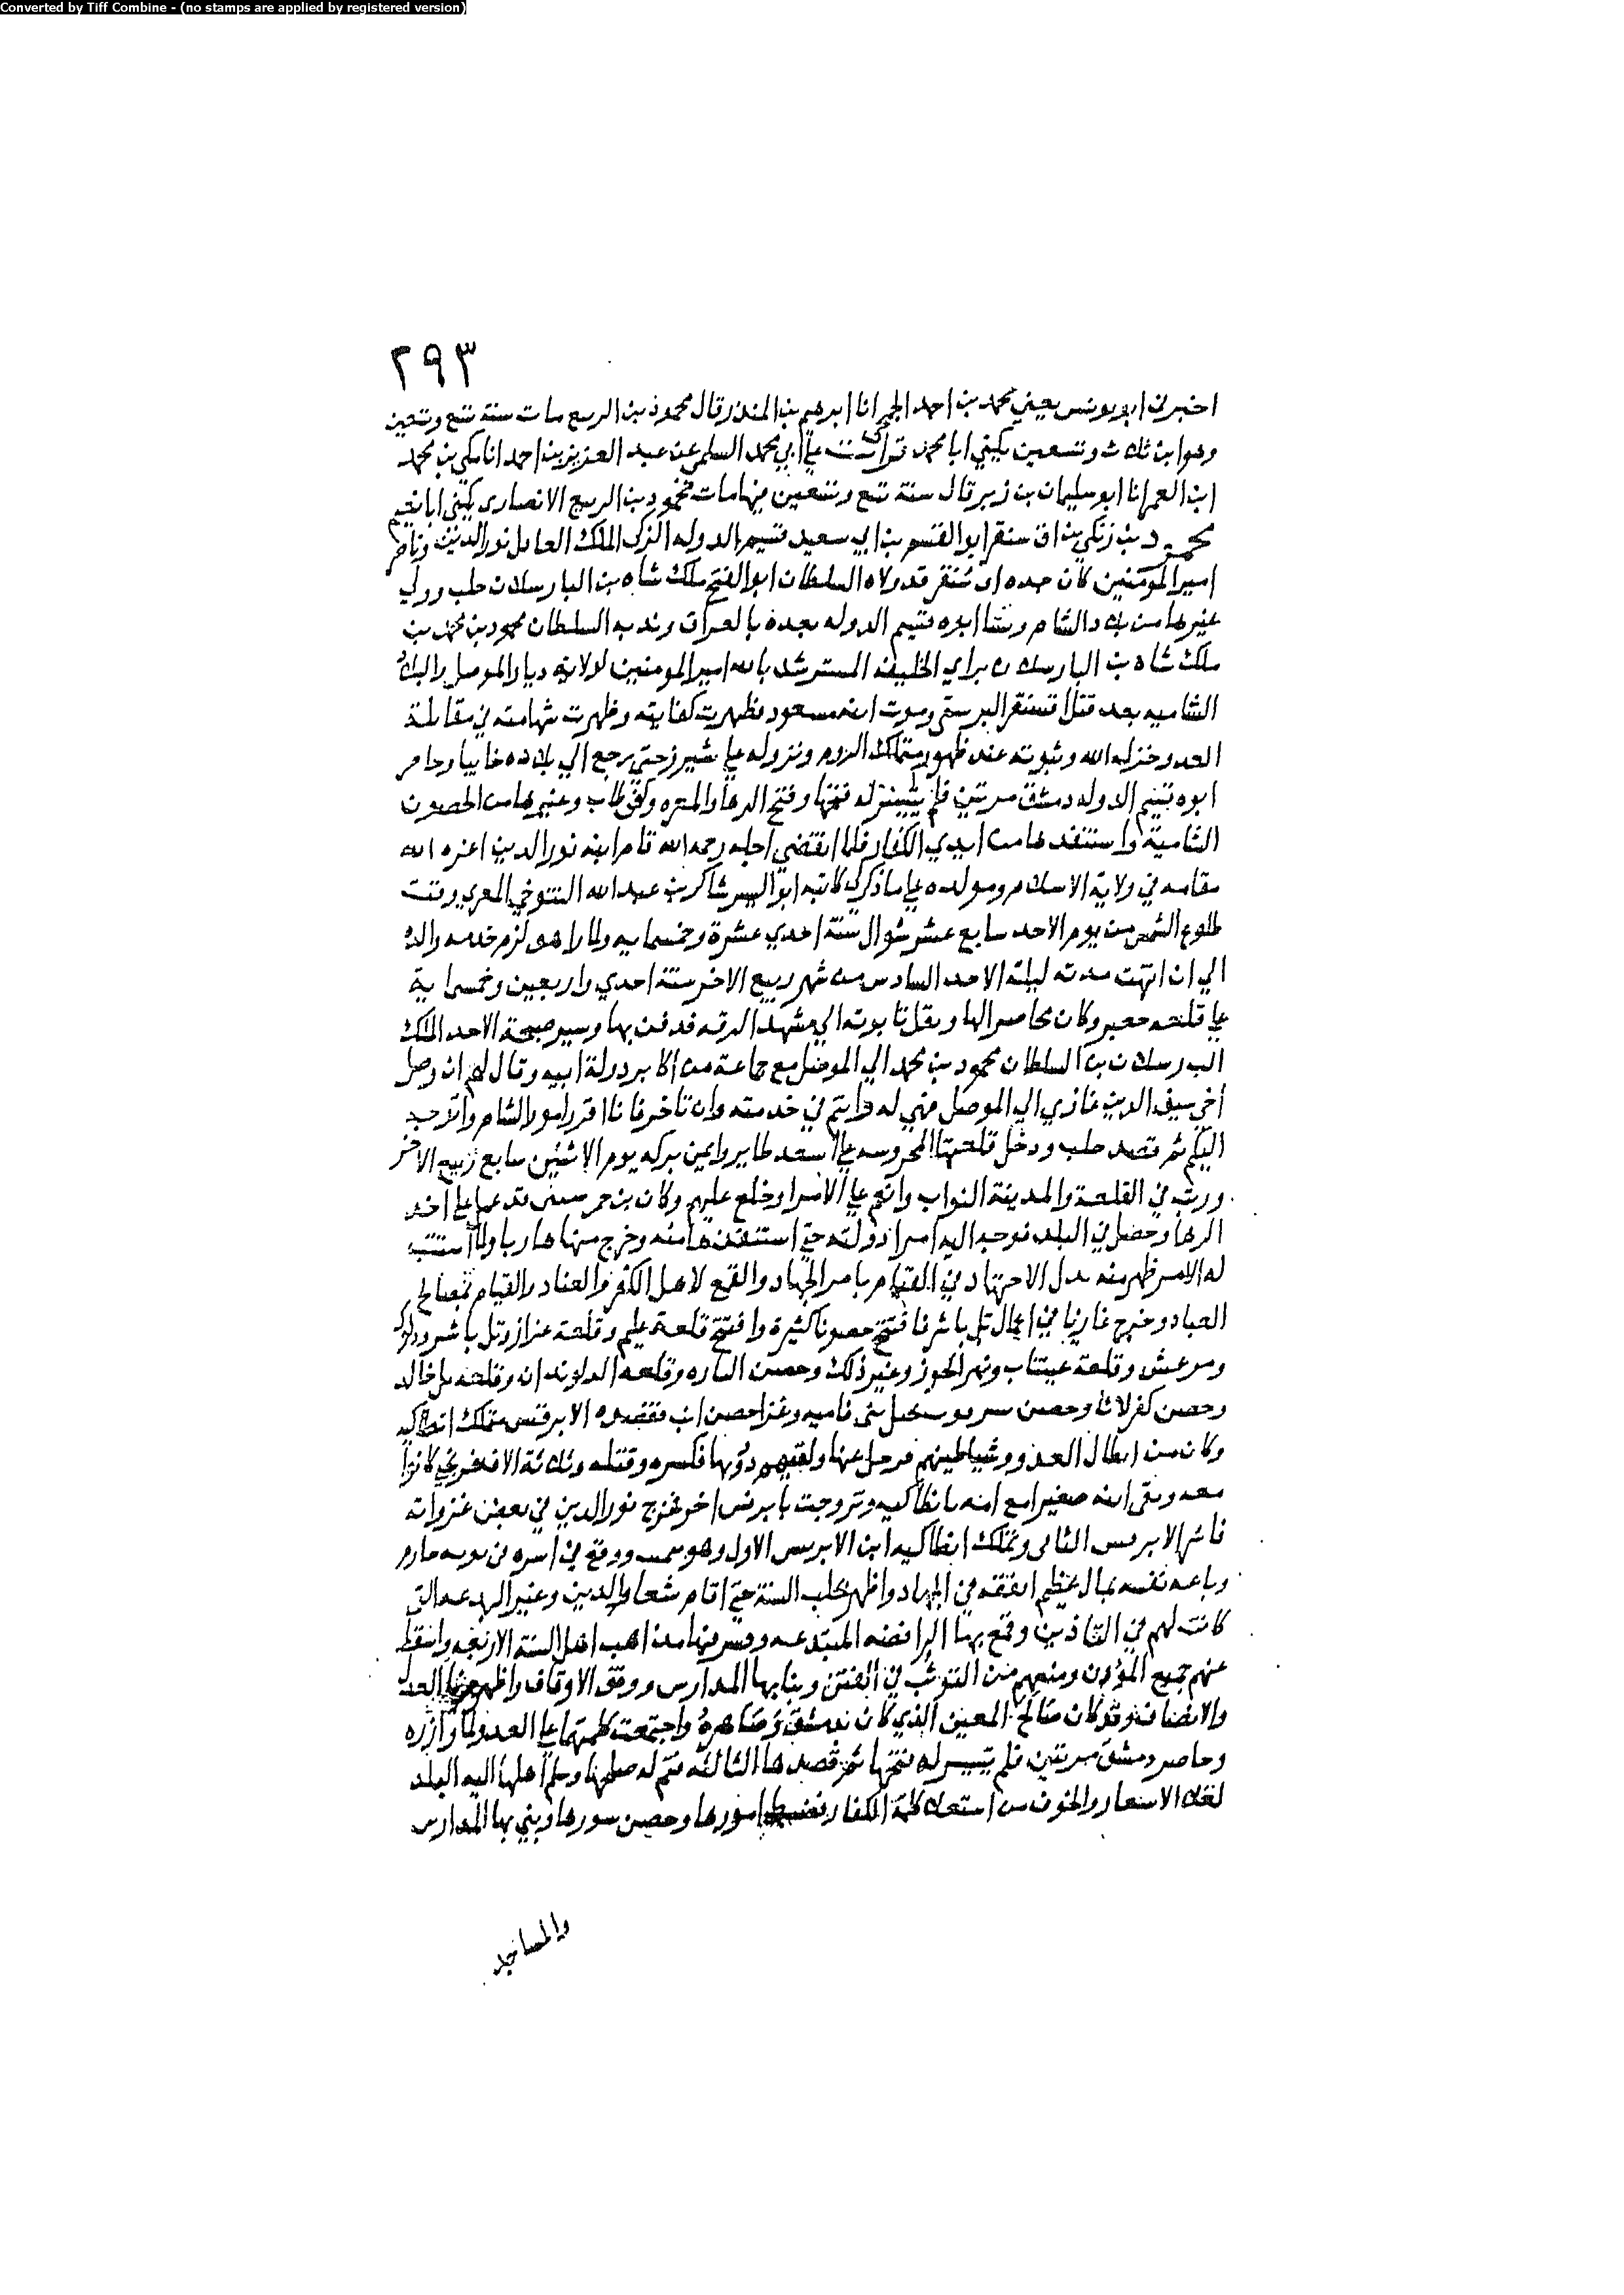 Converted by Tiff Combine - (no stamps are applied by registered version)
٢٩٣
اخبرني ابو يونس يعني محمد بن احمد انا ابرهيم بن المنذر قال محمود بن الربيع مات سنة تسع وتسعين
وهو ابن ثلاث وتسعين يكني ابا محمد قرات علي ابي محمد السلمي عن عبد العزيز بن احمد انا مكي بن محمد
ابن الغمر انا ابو سليمان بن زبر قال سنة تسع وتسعين فيها مات محمود بن الربيع الانصاري يكني ابا نعيم
محمود بن زنكي بن اق سنقر ابو القسم بن ابي سعيد قسيم الدوله التركي الملك العادل نور الدين وناصر
امير المومنين كان جده اق سنقر قد ولاه السلطان ابو الفتح ملك شاه بن البارسلان حلب وولي
غيرها من بلاد الشام ونشا ابوه قسيم الدوله بعده بالعراق وندبه السلطان محمود بن محمد بن
ملك شاه بن البارسلان براي الخليفه المسترشد بالله امير المومنين لولاية ديار الموصل والبلاد
الشاميه بعد قتل اقسنقر البرسقي وموت ابنه مسعود فظهرت كفايته وظهرت شهامته في مقابلة
العدو خذله الله وثبوته عند ظهور متملك الروم ونزوله علي شيزر حتي رجع الي بلاده خايبا وحاصر
ابوه قسيم الدوله دمشق مرتين فلم يتيسر له فتحها وفتح الرها والمعره وكفرطاب وغيرها من الحصون
الشامية واستنقذها من ايدي الكفار فلما انقضي اجله رحمه الله قام ابنه نور الدين اعزه الله
مقامه في ولاية الاسلام ومولده علي ما ذكر لي كاتبه ابو اليسر شاكر بن عبد الله التنوخي المعري وقت
طلوع الشمس من يوم الاحد سابع عشر شوال سنة احدي عشرة وخمسمايه ولما راهق لزم خدمه والده
الي ان انتهت مدته ليلة الاحد السادس من شهر ربيع الاخر سنة احدي واربعين وخمسماية
علي قلعه جعبر وكان محاصرا لها ونقل تابوته الي مشهد الرقه فدفن بها وسير صبيحة الاحد الملك
البرسلان بن السلطان محمود بن محمد الي الموصل مع جماعة من اكابر دولة ابيه وقال لهم ان وصل
أخي سيف الدين غازي الي الموصل فهي له وانتم في خدمته وان تاخر فانا اقرر امور الشام واتوجه
اليكم ثم قصد حلب ودخل قلعتها المحروسه علي اسعد طاير وايمن بركه يوم الاثنين سابع ربيع الاخر
ورتب في القلعة والمدينة النواب وانعم علي الامرا وخلع عليهم وكان بن علي اخذ
الرها وحصل في البلد فوجه اليه امرا دولته حتي استنقذها منه وخرج منها هاربا ولما استتب
له الامر ظهر منه بذل الاجتهاد في القيام بامر الجهاد والقمع لاهل الكفر والعناد والقيام بمصالح
العباد وخرج غازيا في اعمال تل باشر فافتتح حصونا كثيرة وافتتح قلعة وقلعة عزاز وتل باشر ودلوك
ومرعش وقلعة عينتاب ونهر الجوز وغير ذلك وحصن الباره وقلعه الراوندان وقلعه تل خالد
وحصن كفرلاثا وحصن وغزا حصن انب فقصده الابرنس متملك انطاكيه
وكان من ابطال العدو وشياطينهم فرحل عنها ولقيهم دونها فكسره وقتله وثلاثة الاف فرنجي كانوا
معه وبقي ابنه صغيرا مع امه بانطاكيه وتزوجت بابرنس اخر فخرج نور الدين في بعض غزواته
فاسر الابرنس الثاني وتملك انطاكيه ابن الابرنس الاول وهو ووقع في اسره في نوبه حارم
وباعه نفسه بمال عظيم انفقه في الجهاد واظهر بحلب السنة حتي اقام شعار الدين وغير البدعه التي
كانت لهم في التاذين وقمع بها الرافضه المبتدعه ونشر فيها مذاهب اهل السنة الاربعه واسقط
عنهم جميع المؤن ومنعهم من التوثب في الفتن وبنا بها المدارس ووقف الاوقاف واظهر فيها العدل
والانصاف وقد كان صالح المعين الذي كان بدمشق وصاهره واجتمعت كلمتهما علي العدو لما وازره
وحاصر دمشق مرتين فلم يتيسر له فتحها ثم قصدها الثالثه فتم له صلحها وسلم اهلها اليه البلد
لغلاء الاسعار والخوف من استعلاء كلمة الكفار فضبط امورها وحصن سورها وبني بها المدارس
والمساجد